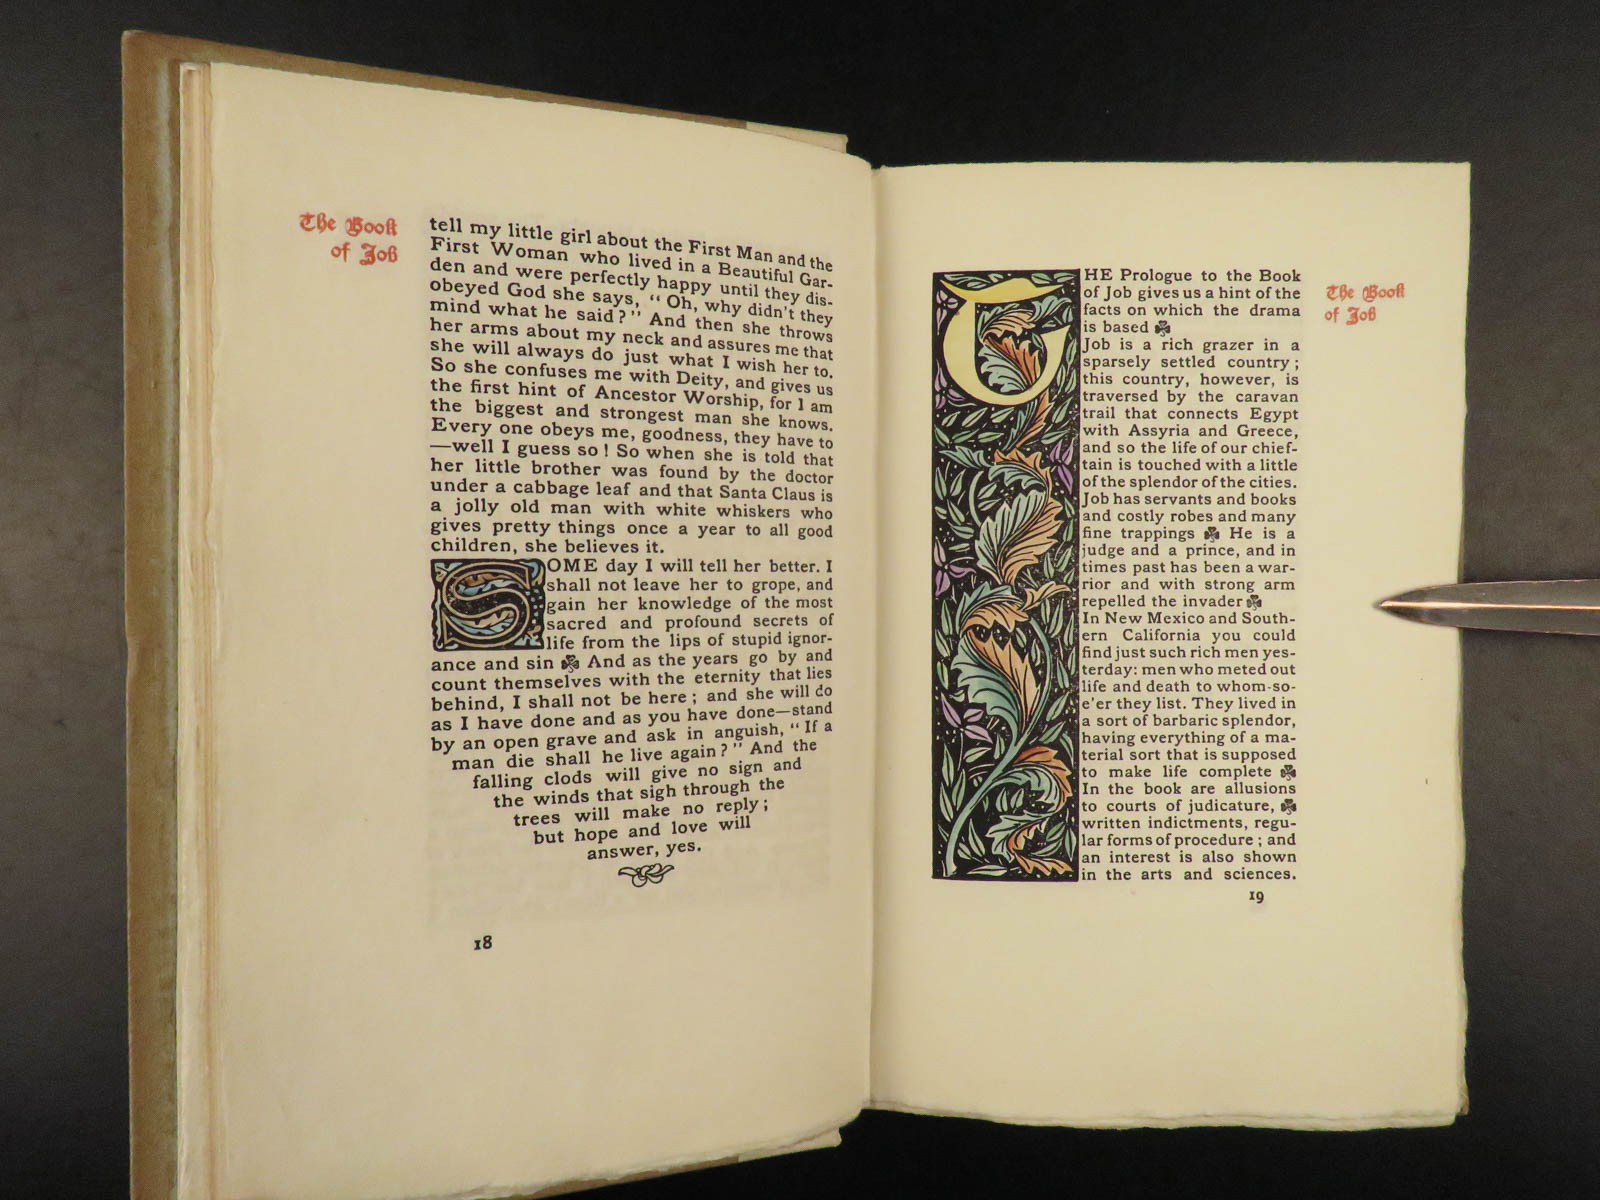 The Book
of Job
tell my little girl about the First Man and the
First Woman who lived in a Beautiful Gar-
den and were perfectly happy until they dis-
obeyed God she says, "Oh, why didn't they
mind what he said?" And then she throws
her arms about my neck and assures me that
she will always do just what I wish her to.
So she confuses me with Deity, and gives us
the first hint of Ancestor Worship, for I am
the biggest and strongest man she knows.
Every one obeys me, goodness, they have to
—well I guess so! So when she is told that
her little brother was found by the doctor
under a cabbage leaf and that Santa Claus is
a jolly old man with white whiskers who
gives pretty things once a year to all good
children, she believes it.
SOME day I will tell her better. I
shall not leave her to grope, and
gain her knowledge of the most
sacred and profound secrets of
life from the lips of stupid ignor-
ance and sin And as the years go by and
count themselves with the eternity that lies
behind, I shall not be here; and she will do
as I have done and as you have done—stand
by an open grave and ask in anguish, "If a
man die shall he live again?" And the
falling clods will give no sign and
the winds that sigh through the
trees will make no reply;
but hope and love will
answer, yes.
18
THE Prologue to the Book
of Job gives us a hint of the
facts on which the drama
is based
Job is a rich grazer in a
sparsely settled country;
this country, however, is
traversed by the caravan
trail that connects Egypt
with Assyria and Greece,
and so the life of our chief-
tain is touched with a little
of the splendor of the cities.
Job has servants and books
and costly robes and many
fine trappings He is a
judge and a prince, and in
times past has been a war-
rior and with strong arm
repelled the invader
In New Mexico and South-
ern California you could
find just such rich men yes-
terday: men who meted out
life and death to whom-so-
e'er they list. They lived in
a sort of barbaric splendor,
having everything of a ma-
terial sort that is supposed
to make life complete
In the book are allusions
to courts of judicature,
written indictments, regu-
lar forms of procedure; and
an interest is also shown
in the arts and sciences.
The Book
of Job
19